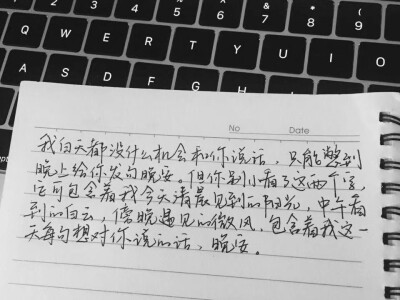 @ # $ % ^ & * (
2 3 4 5 6 7 8 9
Q W E R T Y U I O
A S D F G H J K
No Date
我白天都没什么机会和你说话，只能憋到
晚上给你发句晚安。但你别小看了这两个字，
它可包含着我今天清晨见到的阳光，中午看
到的白云，傍晚遇见的微风，包含着我这一
天每句想对你说的话，晚安。